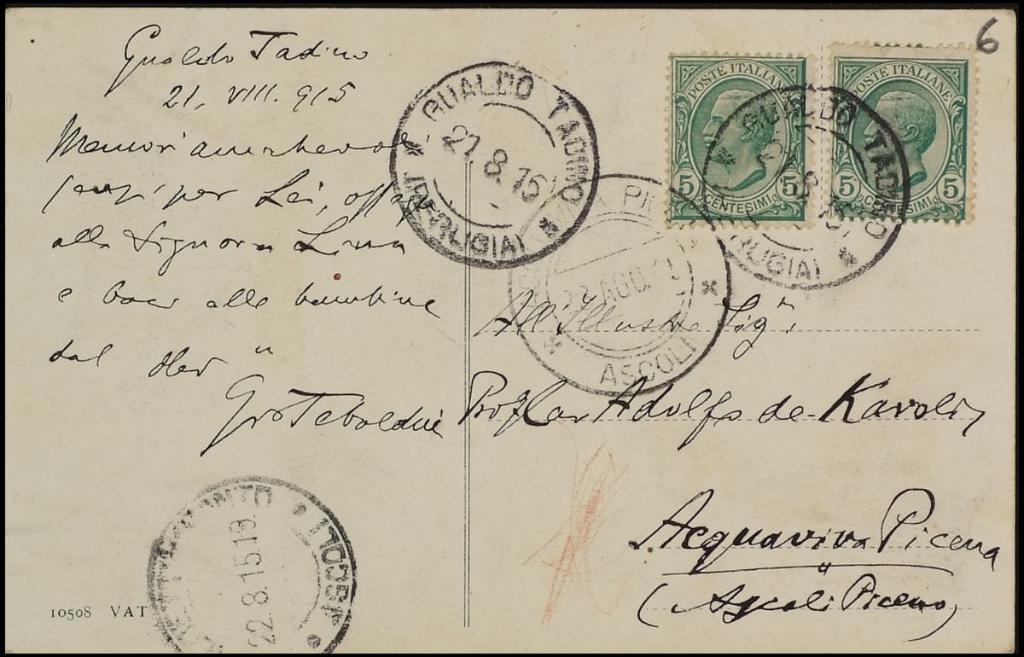 6
Gualdo Tadino
21. VIII. 915
Memori amichevoli
per Lei,
alla Signora Lina
e baci alle bambine
dal
GUALDO TADINO
21.8.15
(PERUGIA)
POSTE ITALIANE
5 CENTESIMI 5
POSTE ITALIANE
5 CENTESIMI 5
GUALDO TADINO
21.8.15
(PERUGIA)
22 AGO. 15
ASCOLI
All'Illustre Sig.
Prof. Cav. Adolfo de Karolis
Acquaviva Picena
(Ascoli Piceno)
22.8.15.18
ASCOLI
10508 VAT